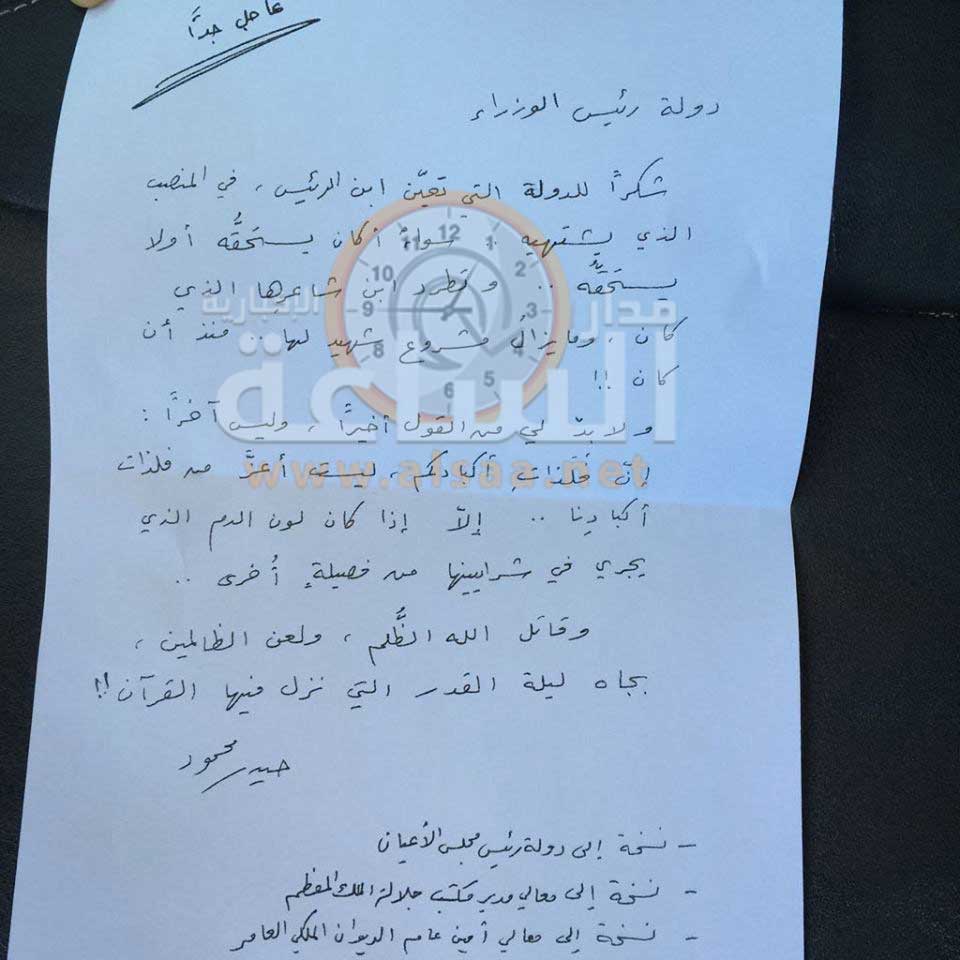 عاجل جدًّا
دولة رئيس الوزراء
شكراً للدولة التي تعيّن ابن الرئيس، في المنصب
الذي يشتهيه .. سواءً أكان يستحقُّه أولا
يستحقُّه .. وتطرد ابن شاعرها الذي
كان، وما يزالُ مشروع شهيد لها .. منذ أن
كان !!
ولا بدّ لي من القول أخيراً، وليس آخراً :
إنّ فلذاتِ أكبادكم، ليست أعزَّ من فلذات
أكبادنا .. إلاّ إذا كان لون الدم الذي
يجري في شرايينها من فصيلةٍ أُخرى ..
وقاتل الله الظُّلم، ولعن الظالمين،
بجاه ليلة القدر التي نزل فيها القرآن !!
حيدر محمود
- نسخة إلى دولة رئيس مجلس الأعيان
- نسخة إلى معالي مدير مكتب جلالة الملك المعظم
- نسخة إلى معالي أمين عام الديوان الملكي العامر
مدار الساعة الإخبارية
www.alsaa.net
12
11
10
9
8
6
5
4
3
2